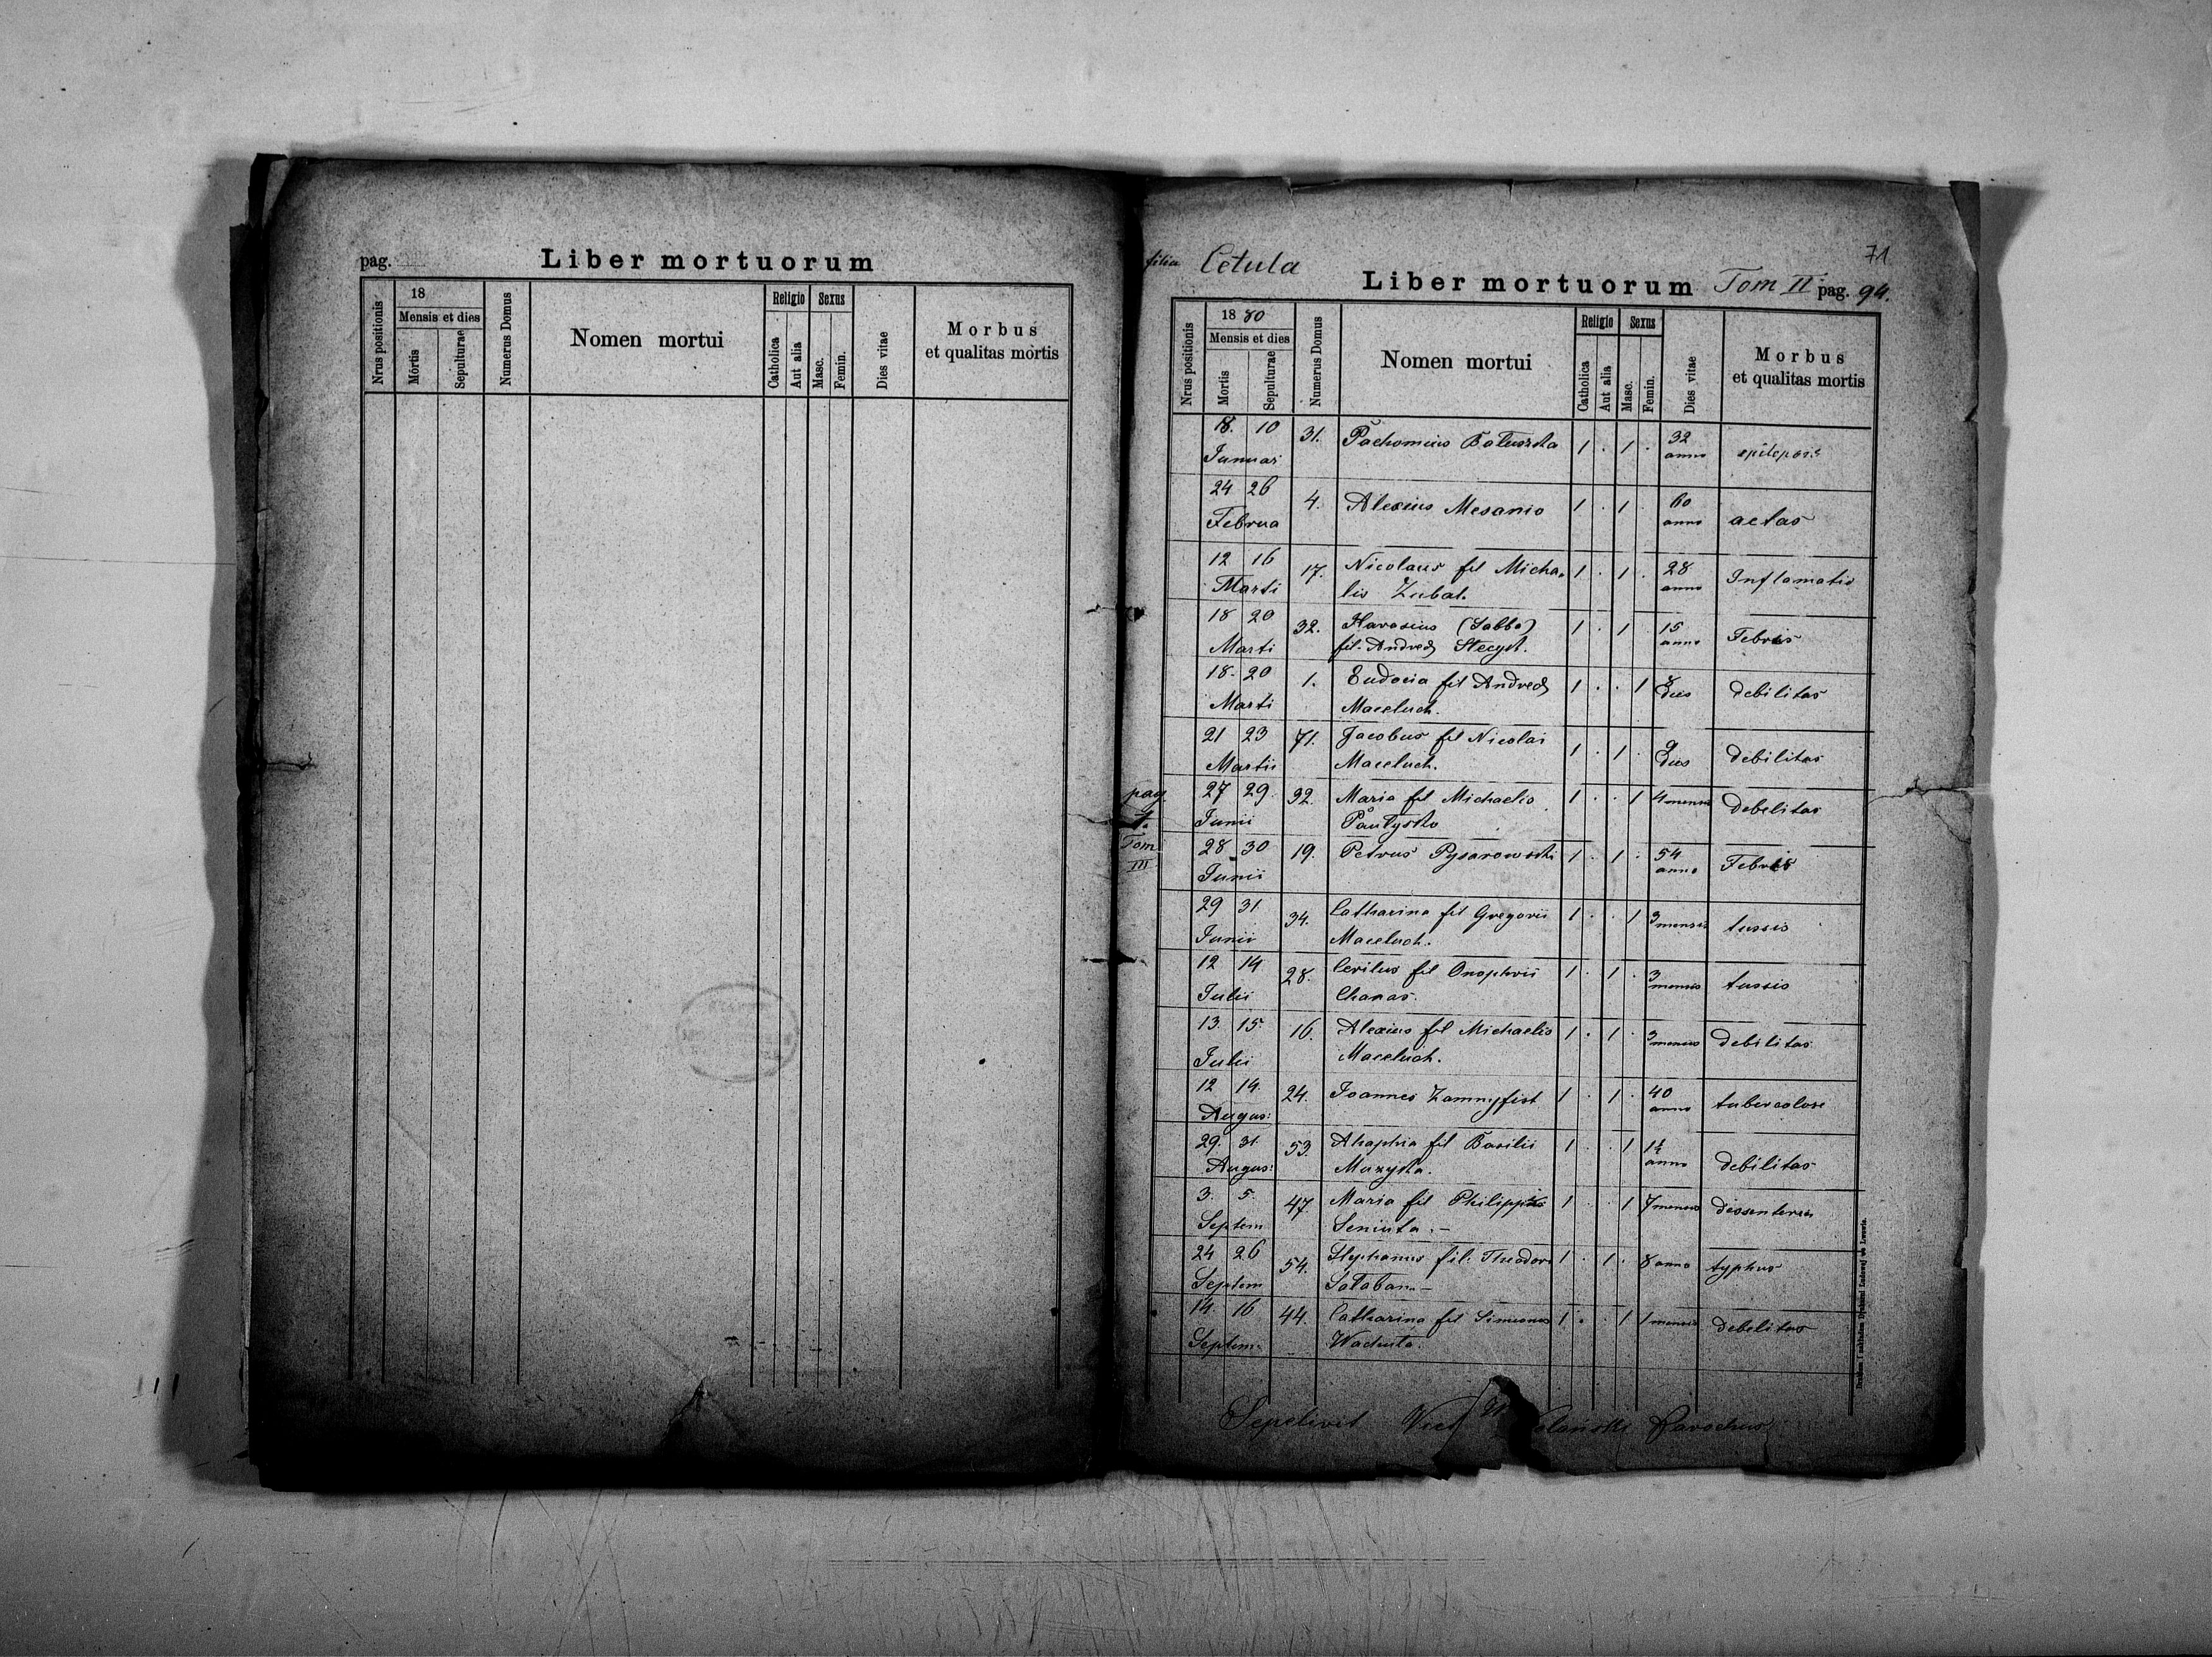 pag.
Liber mortuorum
Nrus positionis
18
Mensis et dies
Mortis
Sepulturae
Numerus Domus
Nomen mortui
Religio
Catholica
Aut alia
Sexus
Masc.
Femin.
Dies vitae
Morbus
et qualitas mortis
filia Cetula
71
Liber mortuorum Tom II pag. 94.
Nrus positionis
18 80
Mensis et dies
Mortis
Sepulturae
Numerus Domus
Nomen mortui
Religio
Catholica
Aut alia
Sexus
Masc.
Femin.
Dies vitae
Morbus
et qualitas mortis
18. 10 31. Pachomius 1 . 1 . 32
Januar anno
24 26 4. Alexius Mesanio 1 . 1 . 60
Februa anno aetas
12 16 17. Nicolaus fil Micha- 1 . 1 . 28 Inflamatio
Marti lis Zubal. anno
18 20 32. Harasius (Sabba) 1 . 1 . 15 Febris
Marti fil. Andreä Stecyk. anno
18. 20 1. Eudocia fil Andreä 1 . . 1 8 debilitas
Marti Maceluch. dies
21 23 71. Jacobus fil Nicolai 1 . 1 . 9 debilitas
Martii Maceluch. dies
pag 1. Tom III
27 29. 32. Maria fil Michaelis 1 . . 1 4 mensis debelitas
Junii
28 30 19. Petrus Pysarowski 1 . 1 . 54 Febris
Junii anno
29 31 34. Catharina fil Gregorii 1 . . 1 3 tussis
Junii Maceluch. mensis
12 14 28. Cerilus fil Onophrii 1 . 1 . 3 tussis
Julii Chanas. mensis
13. 15. 16. Alexius fil Michaelis 1 . 1 . 3 debilitas
Julii Maceluch. mensis
12 14. 24. Joannes 1 . 1 . 40
Augus: anno
29. 31. 53. Ahaphia fil Basilii 1 . . 1 1½ debilitas
Augus: Muzyka. anno
3. 5. 47. Maria fil 1 . . 1 7 mensis
Septem Seniuta.–
24 26 54. Stephanus fil. Theodori 1 . 1 . 8 anno typhus
Septem Sałaban.–
14. 16 44. Catharina fil Simeonis 1 . . 1 1 mensis debelitas
Septem. Wachuta.
Sepelivit Parochus